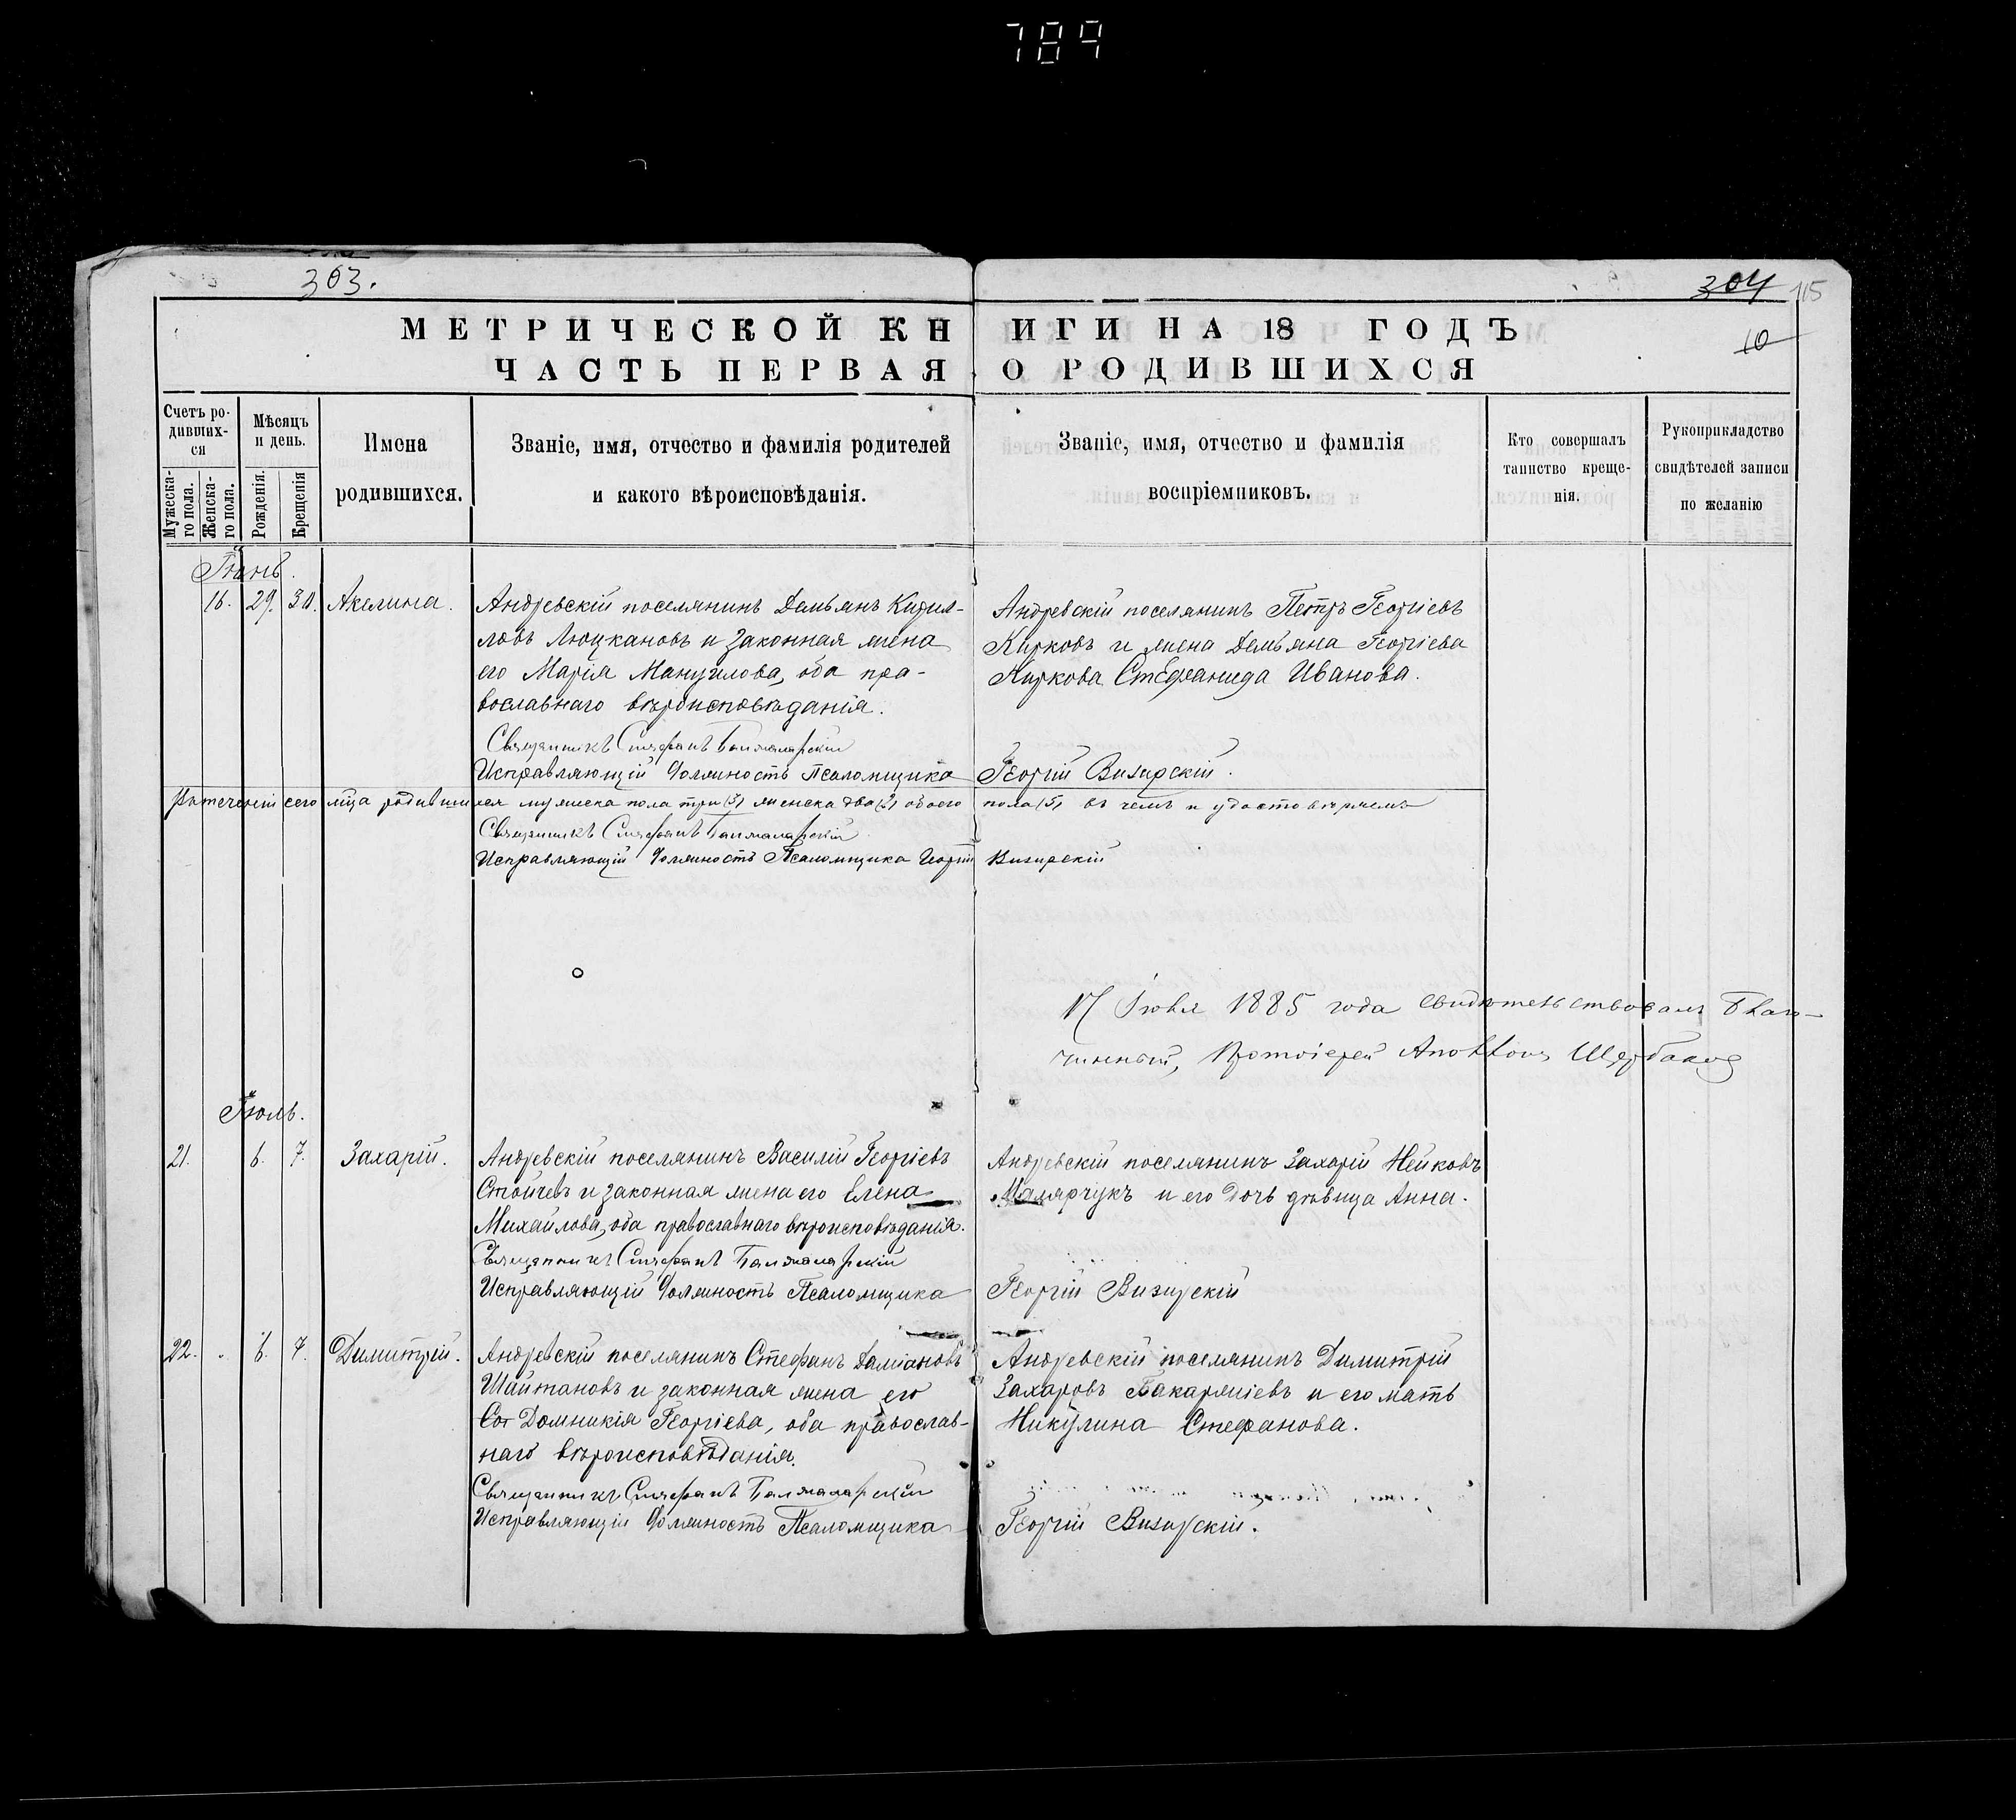 789
303.
304 115
10
МЕТРИЧЕСКОЙ КНИГИ НА 18 ГОДЪ
ЧАСТЬ ПЕРВАЯ О РОДИВШИХСЯ
Счетъ родившихся
Мужескаго пола.
Женскаго пола.
Мѣсяцъ и день.
Рожденія.
Крещенія
Имена родившихся.
Званіе, имя, отчество и фамилія родителей
и какого вѣроисповѣданія.
Званіе, имя, отчество и фамилія
воспріемниковъ.
Кто совершалъ
таинство креще-
нія.
Рукоприкладство
свидѣтелей записи
по желанію
Іюнь.
16. 29. 30. Акелина.
Андревскій поселянинъ Демьянъ Кирил-
ловъ Люцкановъ и законная жена
его Марія Мануилова, оба пра-
вославнаго вѣроисповѣданія.
Священникъ Стефанъ
Исправляющій должность Псаломщика
Андревскій поселянинъ Петръ Георгіевъ
Кирковъ и жена Демьяна Георгіева
Киркова Стефанида Иванова.
Георгій Визирскій.
сего м-ца родившихся мужеска пола три (3) женска два (2) обоего пола (5) въ чемъ и удостовѣряемъ
Священникъ Стефанъ
Исправляющій должность Псаломщика Георгій Визирскій
17 Іюля 1885 года свидѣтельствовалъ Благо-
чинный, Протоіерей Аполлонъ Щербаковъ
Іюль.
21. 6. 7. Захарій.
Андревскій поселянинъ Василій Георгіевъ
Стойчевъ и законная жена его Елена
Михайлова, оба православнаго вѣроисповѣданія.
Священникъ Стефанъ
Исправляющій должность Псаломщика
Андревскій поселянинъ Захарій Нейковъ
Малярчукъ и его дочь дѣвица Анна.
Георгій Визирскій
22. 6. 7. Димитрій.
Андревскій поселянинъ Стефанъ Даміановъ
Шайтановъ и законная жена его
Домникія Георгіева, оба православ-
наго вѣроисповѣданія.
Священникъ Стефанъ
Исправляющій должность Псаломщика
Андревскій поселянинъ Димитрій
Захаровъ и его мать
Никулина Стефанова.
Георгій Визирскій.